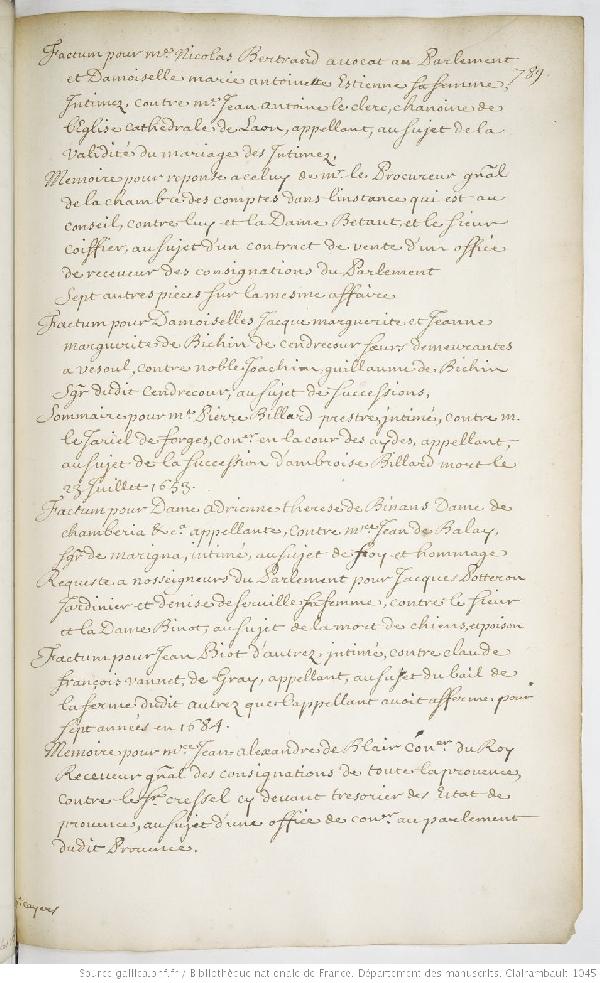 789.
Factum pour mre Nicolas Bertrand avocat au Parlement
et Damoiselle marie antoinette Estienne sa femme,
Intimez, contre mre Jean antoine le clerc, chanoine de
l'Eglise cathedrale de Laon, appellant, au sujet de la
validité du mariage des Intimez.
Memoire pour reponse a celuy de mr. le Procureur gñal
de la chambre des comptes dans l'instance qui est au
conseil, contre luy et la Dame Betaut, et le sieur
coiffier, au sujet d'un contract de vente d'un office
de receveur des consignations du Parlement
Sept autres pieces sur la mesme affaire
Factum pour Damoiselles Jacque marguerite et Jeanne
marguerite de Bichin de Cendrecour sœurs demeurantes
a vesoul, contre noble Joachim guillaume de Bichin
Sgr dudit Cendrecour, au sujet de successions,
Sommaire pour mre Pierre Billard prestre, intimé, contre m.
le Tariel de forges, conr. en la cour des aydes, appellant,
au sujet de la succession d'ambroise Billard mort le
23 Juillet 1653.
Factum pour Dame adrienne therese de Binans Dame de
chamberia &ca. appellante, contre mre Jean de Balay,
sgr de marigna, intimé, au sujet de foy et hommage
Requiste a nosseigneurs du Parlement pour Jacques Potteron
Jardinier et denise de serville sa femme, contre le sieur
et la Dame Binot, au sujet de la mort de chiens, et poison
Factum pour Jean Biot d'autrez, intimé, contre claude
françois vannet, de Gray, appellant, au sujet du bail de
la ferme dudit autrez que l'appellant avoit affermé pour
sept années en 1684.
Memoire pour mre Jean alexandre de Blair Coner. du Roy
Receveur gñal des consignations de toute la provence,
contre le sr. cressel cy devant tresorier des Estat de
provence, au sujet d'une office de conr. au parlement
dudit Provence.
Source gallica.bnf.fr / Bibliothèque nationale de France. Département des manuscrits. Clairambault 1045